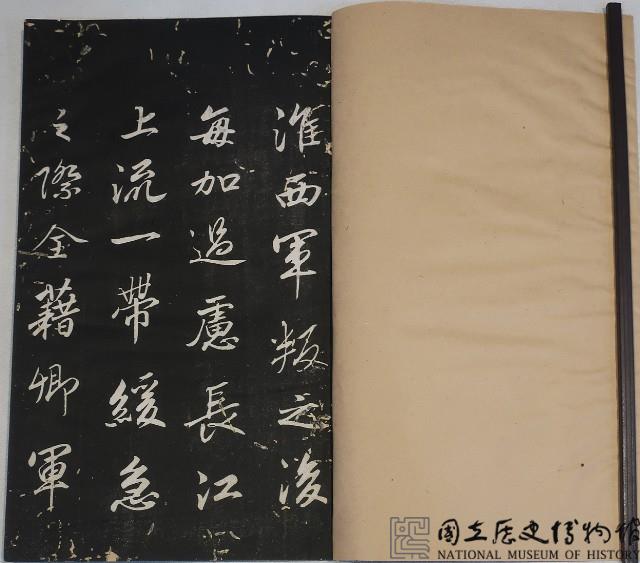 淮西軍叛之後
每加過慮長江
上流一帶緩急
之際全藉卿軍
國立歷史博物館
NATIONAL MUSEUM OF HISTORY